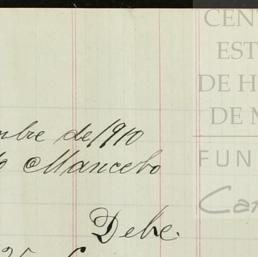 CENT
EST
DE H
DE M
FUN
Car
mbre de 1910
o Mancebo
Debe.